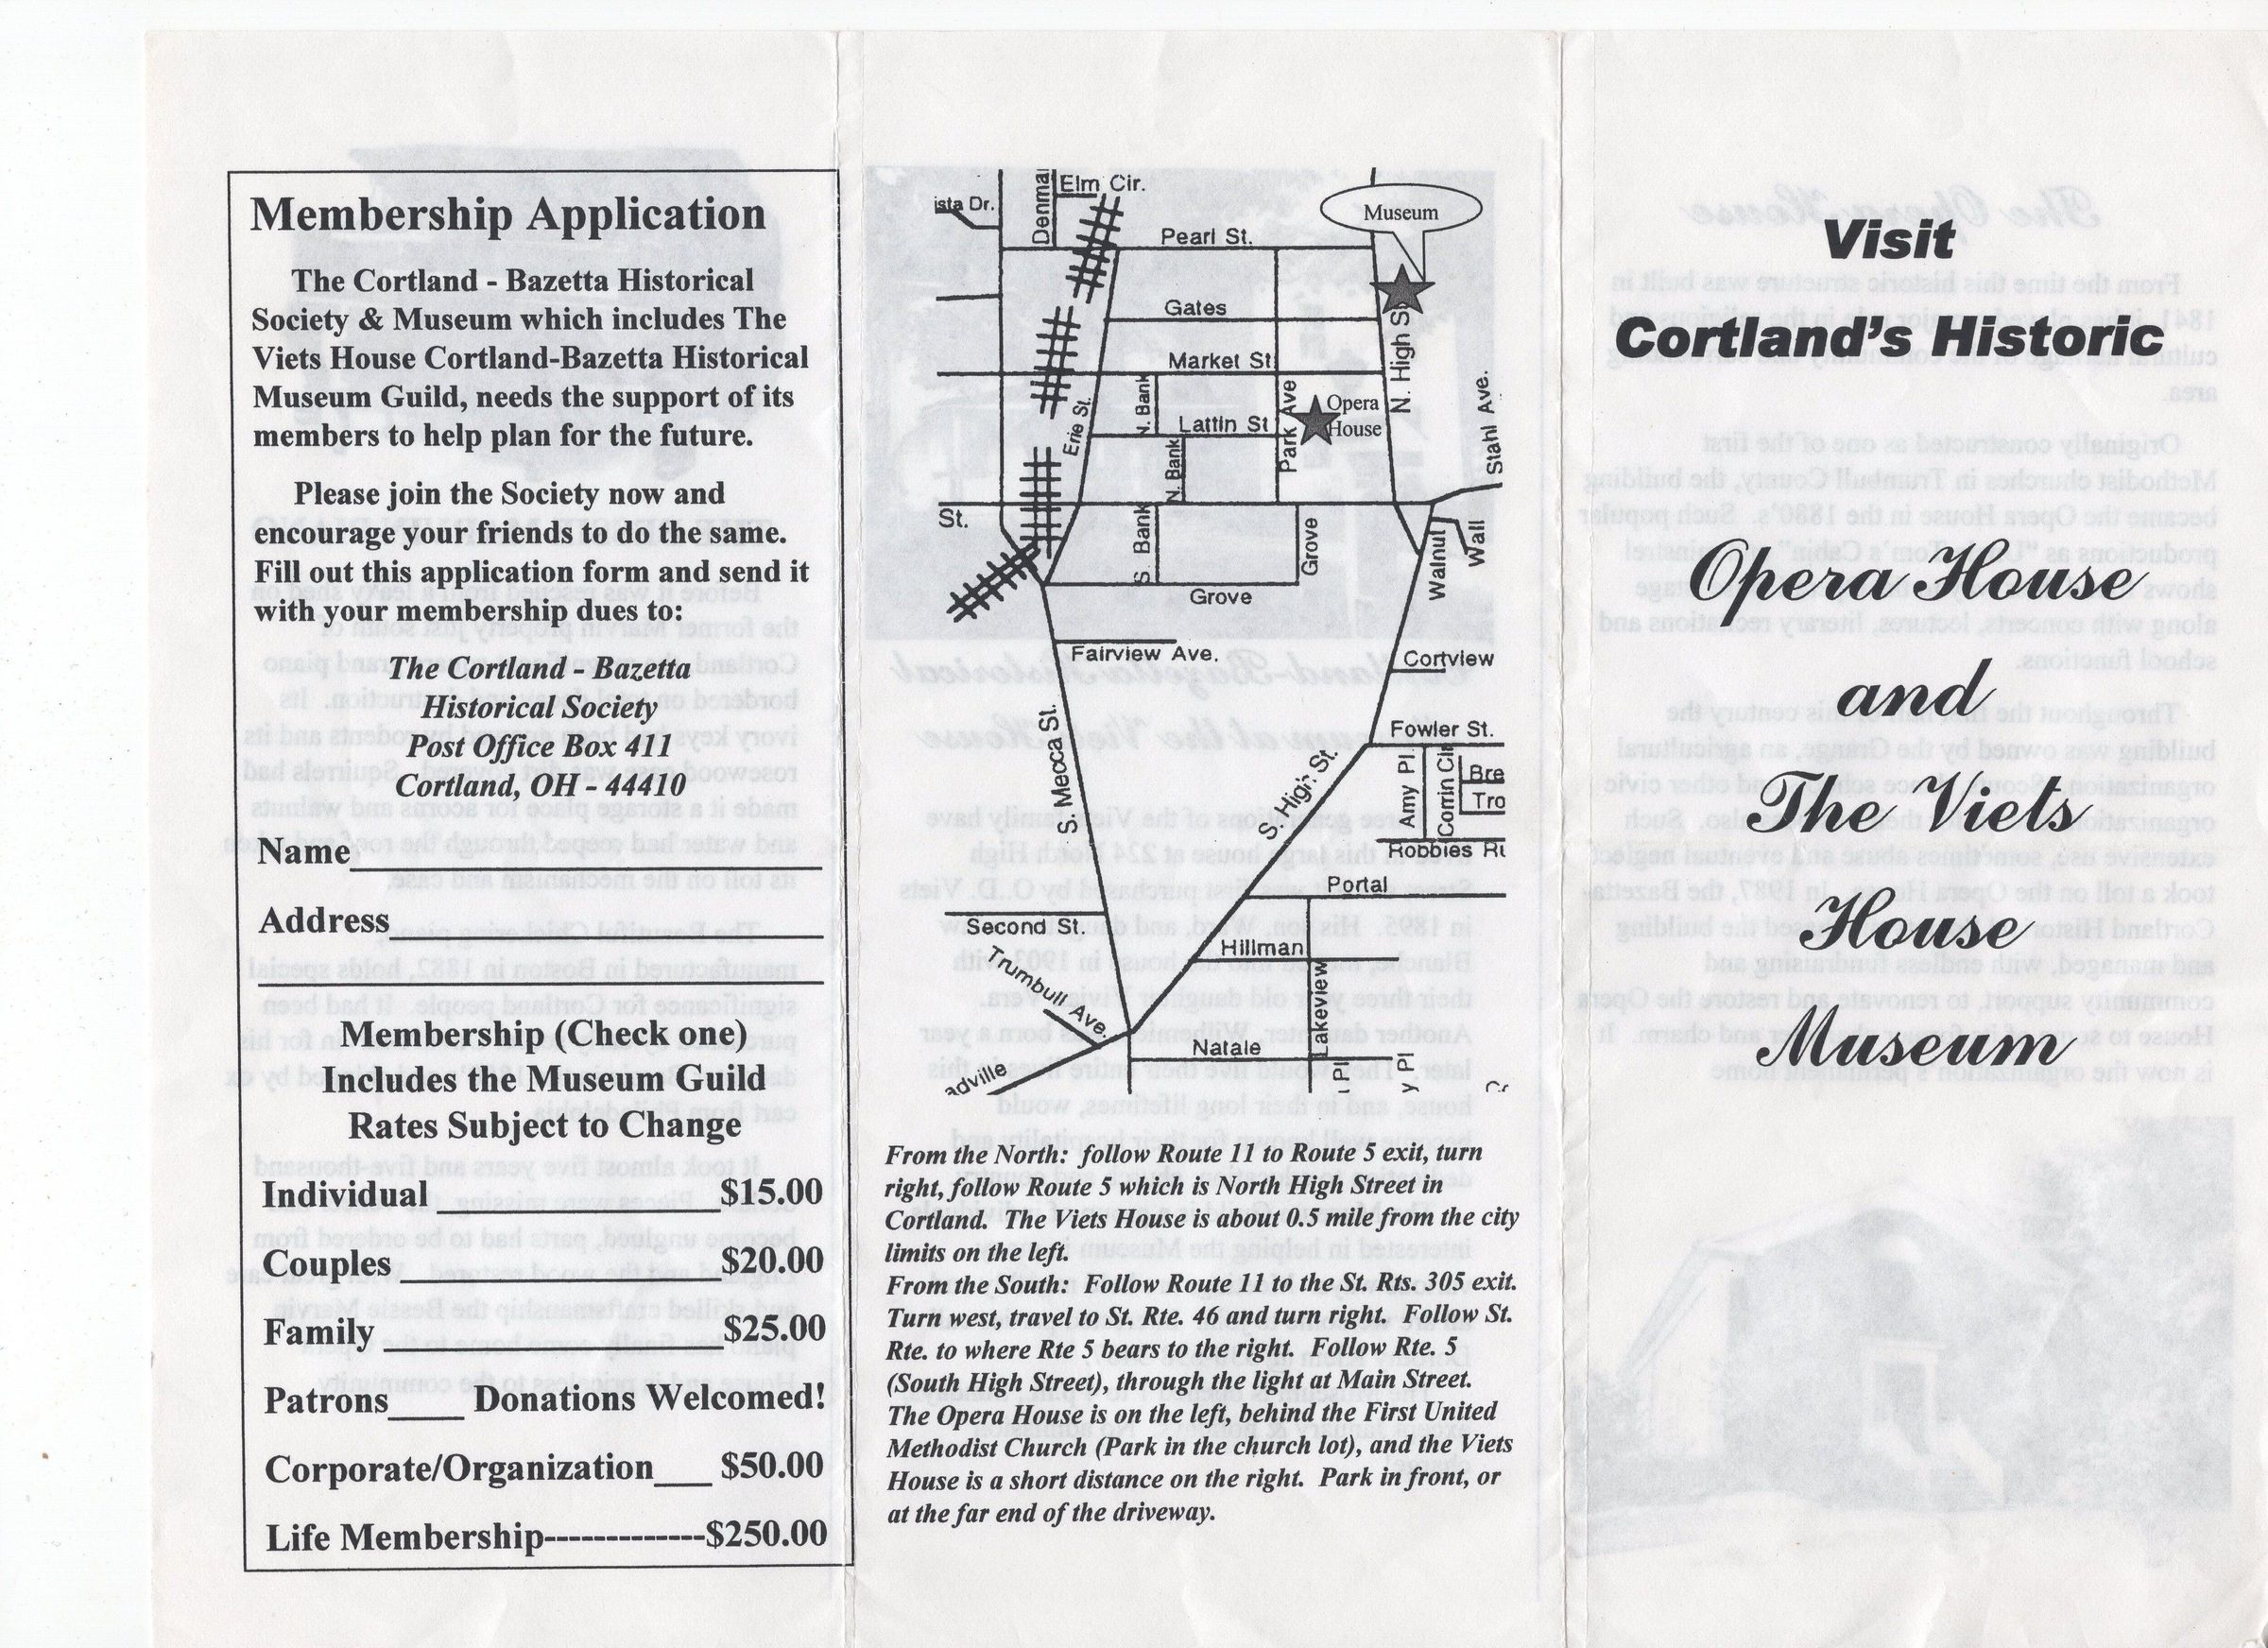 Membership Application
The Cortland - Bazetta Historical
Society & Museum which includes The
Viets House Cortland-Bazetta Historical
Museum Guild, needs the support of its
members to help plan for the future.
Please join the Society now and
encourage your friends to do the same.
Fill out this application form and send it
with your membership dues to:
The Cortland - Bazetta
Historical Society
Post Office Box 411
Cortland, OH - 44410
Name
Address
Membership (Check one)
Includes the Museum Guild
Rates Subject to Change
Individual $15.00
Couples $20.00
Family $25.00
Patrons Donations Welcomed!
Corporate/Organization $50.00
Life Membership-------------$250.00
Elm Cir.
ista Dr.
Denma
Museum
Pearl St.
Gates
N. High St
Market St
Erie St.
N. Bank
Lattin St
Park Ave
Opera
House
Stahl Ave.
N. Bank
St.
S. Bank
Grove
Walnut
Wall
Grove
Fairview Ave.
Cortview
S. Mecca St.
Fowler St.
S. High St.
Amy Pl
Corrin Cir
Bre
Tro
Robbies Ru
Portal
Second St.
Hillman
Trumbull Ave.
Lakeview
Natale
adville
l Pl
y Pl
From the North: follow Route 11 to Route 5 exit, turn
right, follow Route 5 which is North High Street in
Cortland. The Viets House is about 0.5 mile from the city
limits on the left.
From the South: Follow Route 11 to the St. Rts. 305 exit.
Turn west, travel to St. Rte. 46 and turn right. Follow St.
Rte. to where Rte 5 bears to the right. Follow Rte. 5
(South High Street), through the light at Main Street.
The Opera House is on the left, behind the First United
Methodist Church (Park in the church lot), and the Viets
House is a short distance on the right. Park in front, or
at the far end of the driveway.
Visit
Cortland's Historic
Opera House
and
The Viets
House
Museum